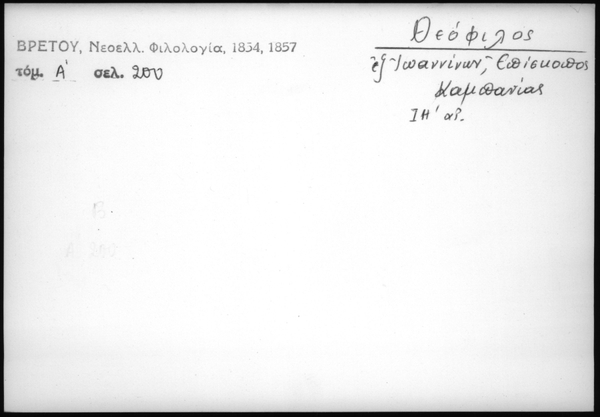 Θεόφιλος
ΒΡΕΤΟΥ, Νεοελλ. Φιλολογία, 1854, 1857
ἐξ Ἰωαννίνων, Ἐπίσκοπος
τόμ. Α' σελ. 200
Καμπανίας
ΙΗ' αἰ.
Β
Α 200